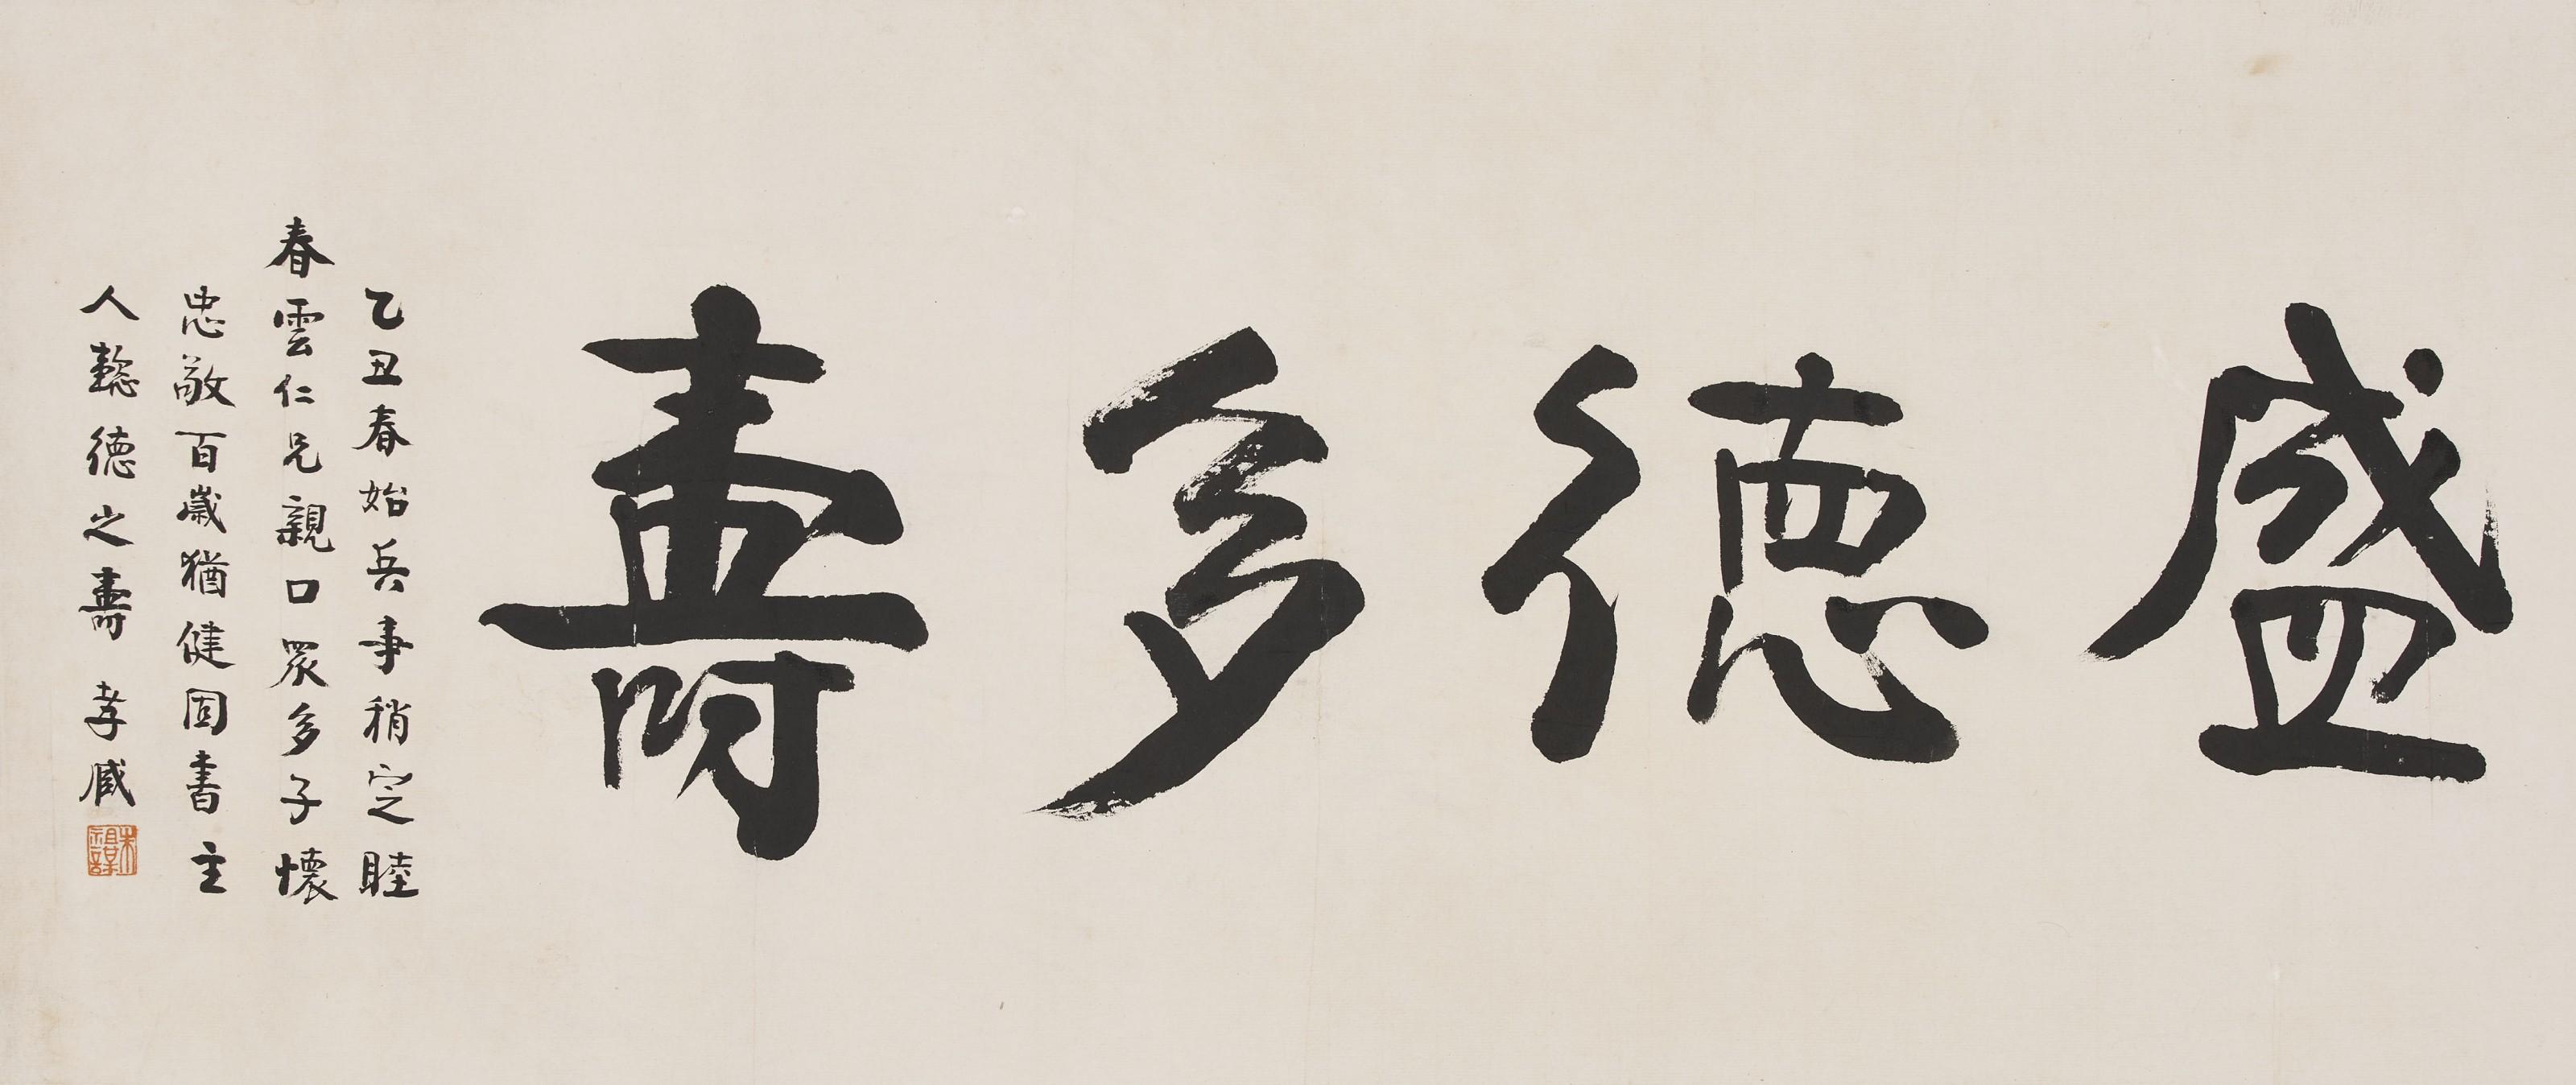 盛德多壽
乙丑春始兵事稍定睦
春雲仁兄親口眾多子懷
忠敬百歲猶健固書主
人懿德之壽 孝臧
朱祖謀